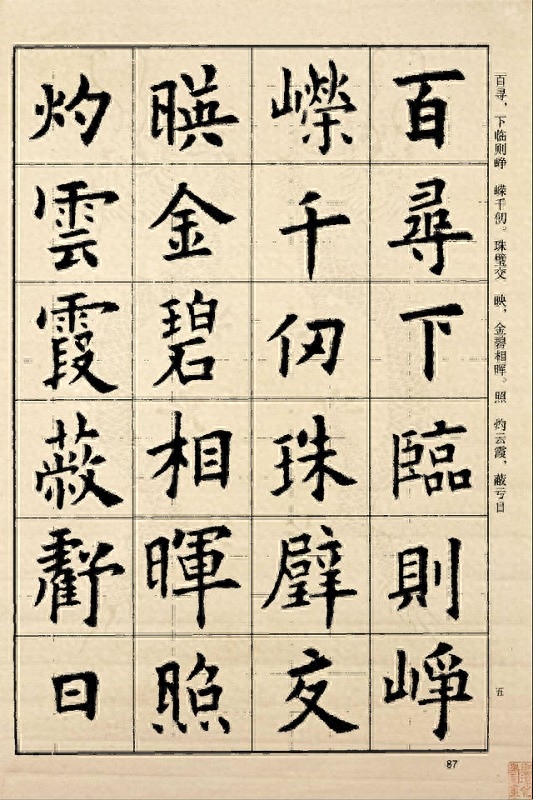 百尋下臨則崢
嶸千仞珠璧交
暎金碧相暉照
灼雲霞蔽虧日
百寻，下临则峥 嵘千仞。珠璧交 映，金碧相晖。照 灼云霞，蔽亏日
五
87